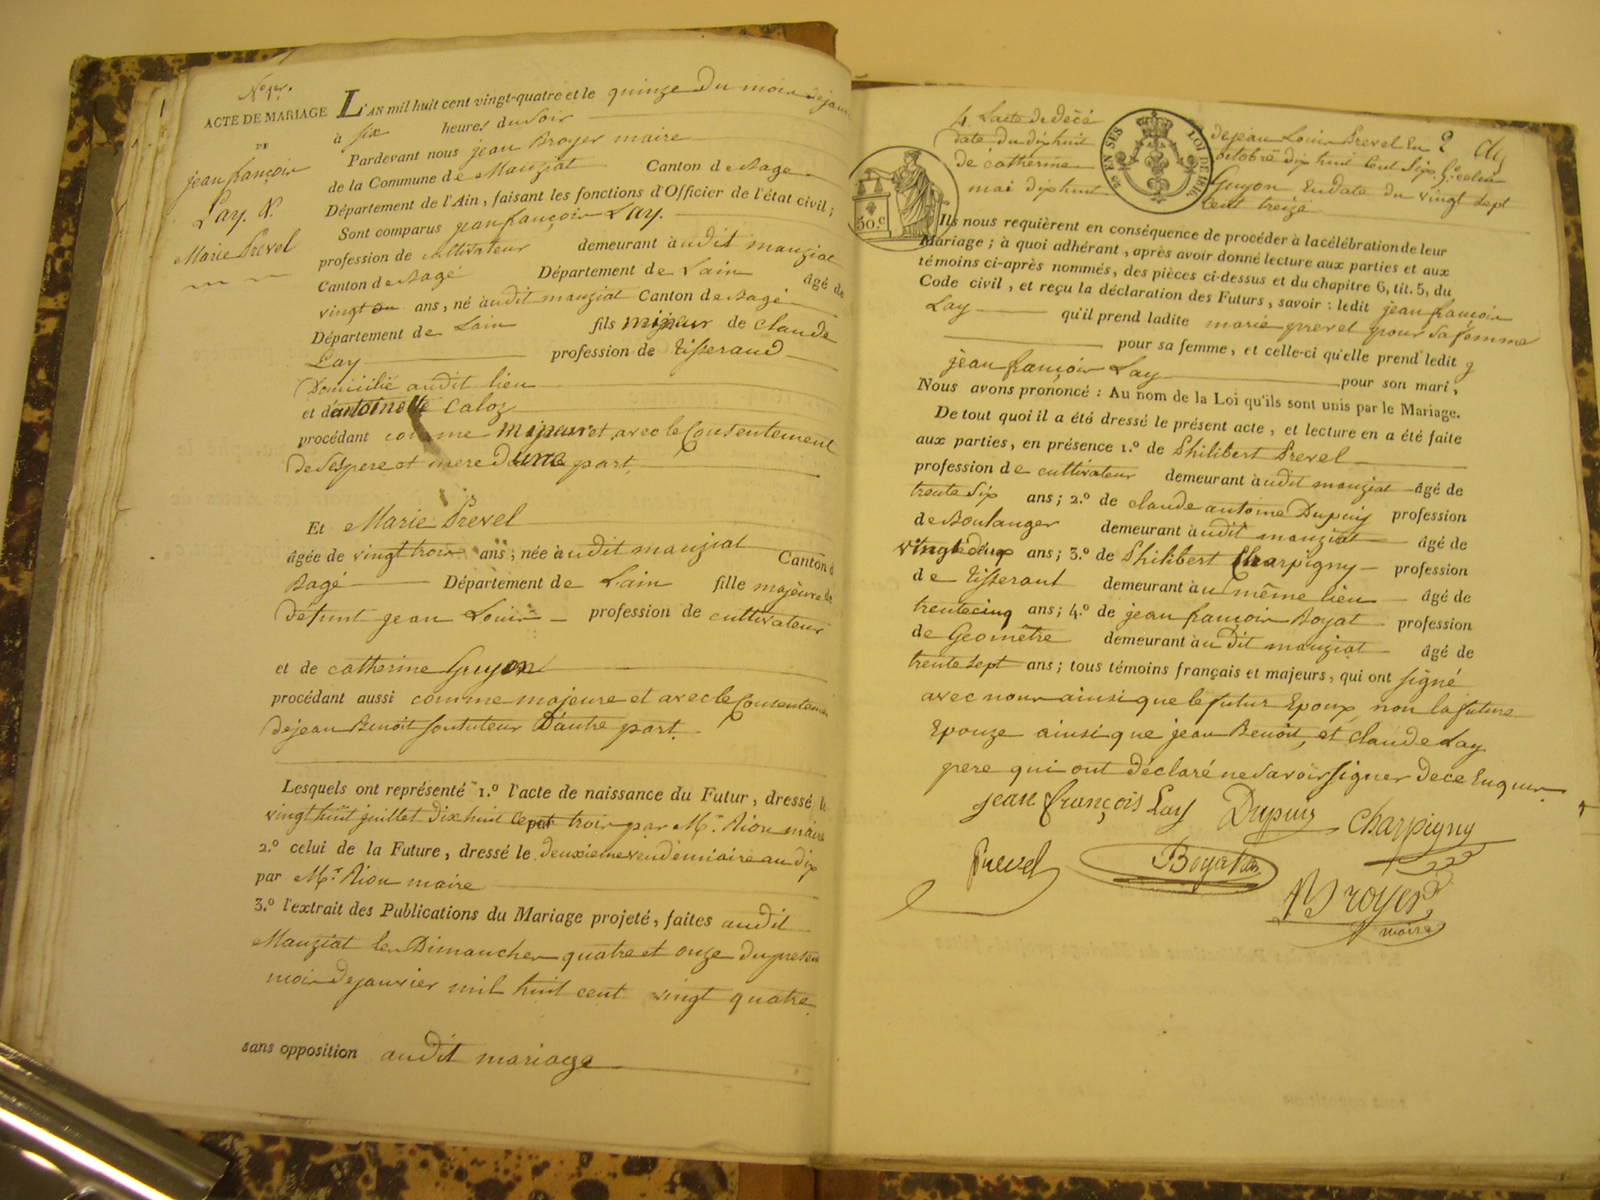 N.º 1er.
ACTE DE MARIAGE
DE
jean françois
Lay. &.
Marie Prevel
LAN mil huit cent vingt-quatre et le quinze du mois de janv
à six heures du soir
Pardevant nous jean Broyer maire
de la Commune de Manziat Canton de Bagé
Département de l'Ain, faisant les fonctions d'Officier de l'état civil;
Sont comparus jean françois Lay.
profession de cultivateur demeurant à udit manziat
Canton de Bagé Département de Lain âgé de
vingt ans, né audit manziat Canton de Bagé
Département de Lain fils mineur de claude
Lay profession de tisserand
Domicilié audit lieu
et d'antoinette Caloz
procédant comme mineur et avec le Consentement
de ses pere et mere d'une part.
Et Marie Prevel
âgée de vingt trois ans; née audit manziat Canton d
Bagé Département de Lain fille majeure de
défunt jean Louis profession de cultivateur
et de catherine Guyon
procédant aussi comme majeure et avec le Consenteme
de jean Benoit son tuteur D'autre part.
Lesquels ont représenté 1.º l'acte de naissance du Futur, dressé le
vingt huit juillet dix huit cent trois par Mr. Riou maire
2.º celui de la Future, dressé le deuxieme vendemiaire an dix
par Mr. Riou maire
3.º l'extrait des Publications du Mariage projeté, faites audit
Manziat les Dimanches quatre et onze du presen
mois de janvier mil huit cent vingt quatre
sans opposition audit mariage
4. Lacte de décé de jean Louis Prevel En 2
date du dix huit octobre dix huit cent six. 5.º celui
de catherine Guyon En date du vingt sept
mai dix huit cent treize
30 c.
LOI DE 1816
Ils nous requièrent en conséquence de procéder à la célébration de leur
Mariage; à quoi adhérant, après avoir donné lecture aux parties et aux
témoins ci-après nommés, des pièces ci-dessus et du chapitre 6, tit. 5, du
Code civil, et reçu la déclaration des Futurs, savoir: ledit jean françois
Lay qu'il prend ladite marie prevel pour sa femme
pour sa femme, et celle-ci qu'elle prend ledit
jean françois Lay pour son mari,
Nous avons prononcé: Au nom de la Loi qu'ils sont unis par le Mariage.
De tout quoi il a été dressé le présent acte, et lecture en a été faite
aux parties, en présence 1.º de Philibert Prevel
profession de cultivateur demeurant à udit manziat âgé de
trente six ans; 2.º de claude antoine Dupuis profession
de Boulanger demeurant à udit manziat âgé de
vingt deux ans; 3.º de Philibert Charpigny profession
de tisserant demeurant au même lieu âgé de
trente cinq ans; 4.º de jean françois Boyat profession
de Géomêtre demeurant à u Dit manziat âgé de
trente sept ans; tous témoins français et majeurs, qui ont signé
avec nous ainsi que le futur Epoux, non la future
Epouze ainsi que jean Benoit, et claude Lay
pere qui ont déclaré ne savoir signer de ce Enquis.
jean françois Lay Dupuis Charpigny
Prevel Boyat
Broyer
maire